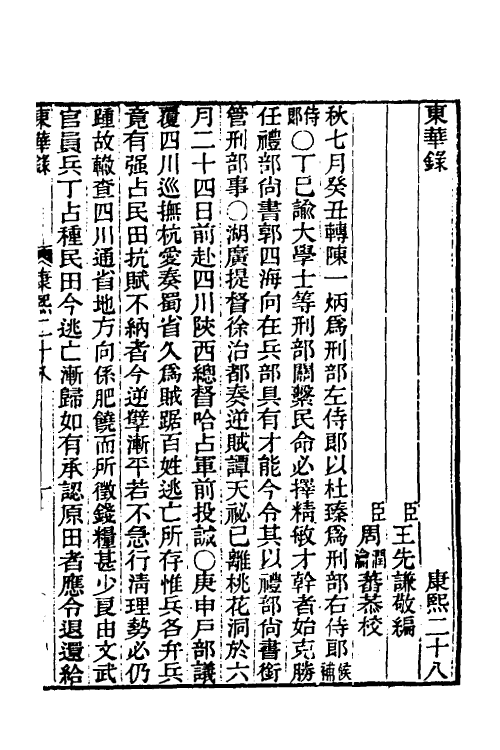 東華錄　康熙二十八
臣王先謙敬編
臣周潤蕃周瀹蕃恭校
秋七月癸丑轉陳一炳爲刑部左侍郎以杜臻爲刑部右侍郎候補
侍郎〇丁巳諭大學士等刑部關繫民命必擇精敏才幹者始克勝
任禮部尙書郭四海向在兵部具有才能今令其以禮部尙書銜
管刑部事〇湖廣提督徐治都奏逆賊譚天祕已離桃花洞於六
月二十四日前赴四川陝西總督哈占軍前投誠〇庚申戶部議
覆四川巡撫杭愛奏蜀省久爲賊踞百姓逃亡所存惟兵各弁兵
竟有强占民田抗賦不納者今逆孽漸平若不急行淸理勢必仍
踵故轍查四川通省地方向係肥饒而所徵錢糧甚少良由文武
官員兵丁占種民田今逃亡漸歸如有承認原田者應令退還給
東華錄　康熙二十八　一